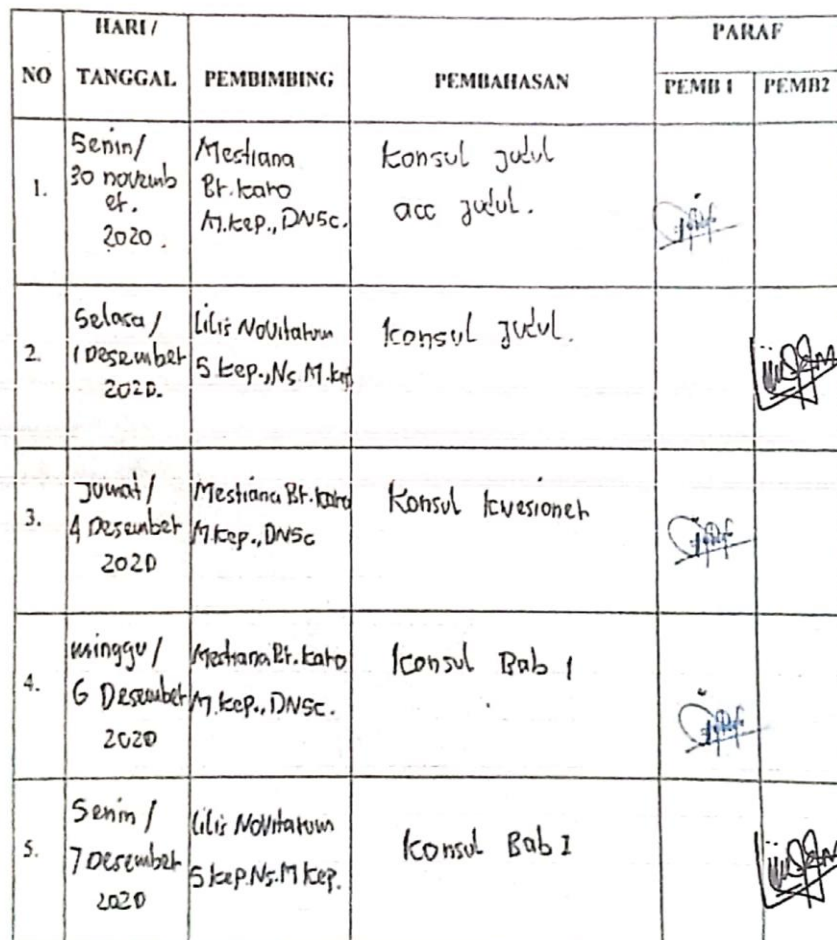 NO
HARI /
TANGGAL
PEMBIMBING
PEMBAHASAN
PARAF
PEMB 1
PEMB2
1.
Senin/
30 novemb
er.
2020.
Mestiana
Br.karo
M.kep., DNSc.
konsul judul
acc judul.
2.
Selasa /
1 Desember
2020.
Lilis Novitarum
S.kep.,Ns.M.kep
konsul judul.
3.
Jumat /
4 Desember
2020
Mestiana Br.karo
M.kep., DNSc
Konsul kuesioner
4.
minggu /
6 Desember
2020
Mestiana Br.karo
M.kep., DNSc.
konsul Bab 1
5.
Senin /
7 Desember
2020
Lilis Novitarum
S kep.Ns.M kep.
konsul Bab I